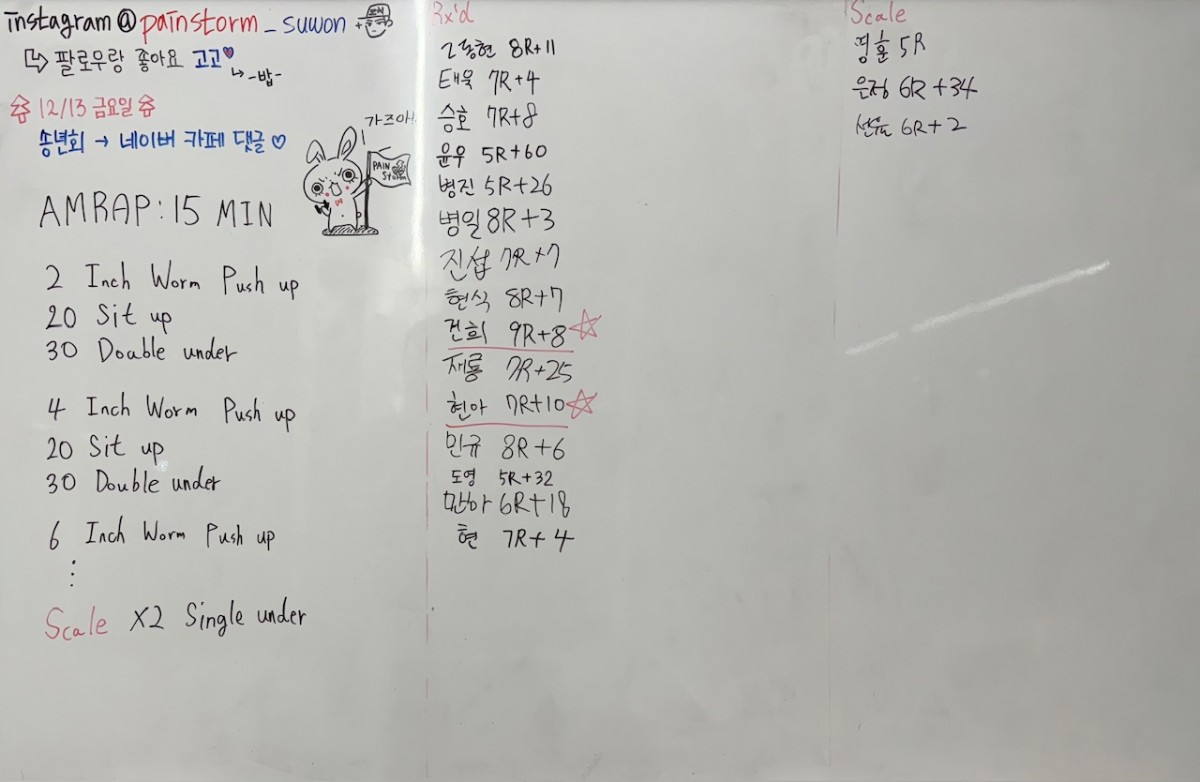 instagram@painstorm_suwon
팔로우랑 좋아요 고고♥
-밥-
12/13 금요일
송년회 → 네이버 카페 댓글♡
가즈아!
PAIN
Storm
AMRAP: 15 MIN
2 Inch Worm Push up
20 Sit up
30 Double under
4 Inch Worm Push up
20 Sit up
30 Double under
6 Inch Worm Push up
⋮
Scale X2 Single under
Rx'd
고동현 8R+11
태욱 7R+4
승호 7R+8
윤우 5R+60
병진 5R+26
병일 8R+3
진섭 7R+7
현식 8R+7
건희 9R+8☆
재룡 7R+25
현아 7R+10☆
민규 8R+6
도영 5R+32
6R+18
현 7R+4
Scale
영훈 5R
은정 6R+34
6R+2